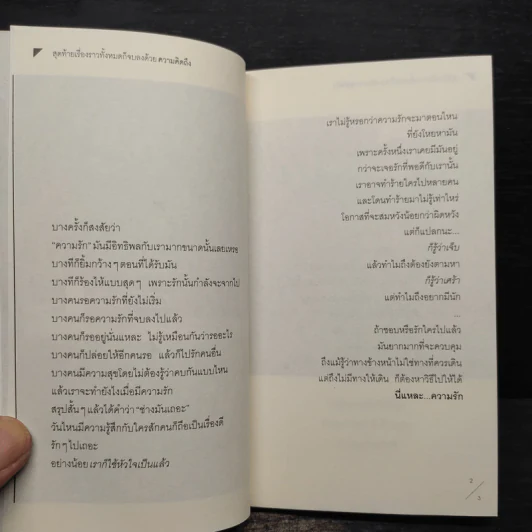 สุดท้ายเรื่องราวทั้งหมดก็จบลงด้วย ความคิดถึง
บางครั้งก็สงสัยว่า
"ความรัก" มันมีอิทธิพลกับเรามากขนาดนั้นเลยเหรอ
บางทีก็ยิ้มกว้างๆ ตอนที่ได้รับมัน
บางทีก็ร้องไห้แบบสุดๆ เพราะรักนั้นกำลังจะจากไป
บางคนรอความรักที่ยังไม่เริ่ม
บางคนก็รอความรักที่จบลงไปแล้ว
บางคนก็รออยู่นั่นแหละ ไม่รู้เหมือนกันว่ารออะไร
บางคนก็ปล่อยให้อีกคนรอ แล้วก็ไปรักคนอื่น
บางคนมีความสุขโดยไม่ต้องรู้ว่าคบกันแบบไหน
แล้วเราจะทำยังไงเมื่อมีความรัก
สรุปสั้นๆ แล้วได้คำว่า "ช่างมันเถอะ"
วันไหนมีความรู้สึกกับใครสักคนก็ถือเป็นเรื่องดี
รักๆ ไปเถอะ
อย่างน้อย เราก็ใช้หัวใจเป็นแล้ว
เราไม่รู้หรอกว่าความรักจะมาตอนไหน
ที่ยังโหยหามัน
เพราะครั้งหนึ่งเราเคยมีมันอยู่
กว่าจะเจอรักที่พอดีกับเรานั้น
เราอาจทำร้ายใครไปหลายคน
และโดนทำร้ายมาไม่รู้เท่าไหร่
โอกาสที่จะสมหวังน้อยกว่าผิดหวัง
แต่ก็แปลกนะ...
ก็รู้ว่าเจ็บ
แล้วทำไมถึงต้องยังตามหา
ก็รู้ว่าเศร้า
แต่ทำไมถึงอยากมีนัก
...
ถ้าชอบหรือรักใครไปแล้ว
มันยากมากที่จะควบคุม
ถึงแม้รู้ว่าทางข้างหน้าไม่ใช่ทางที่ควรเดิน
แต่ถึงไม่มีทางให้เดิน ก็ต้องหาวิธีไปให้ได้
นี่แหละ...ความรัก
2
3